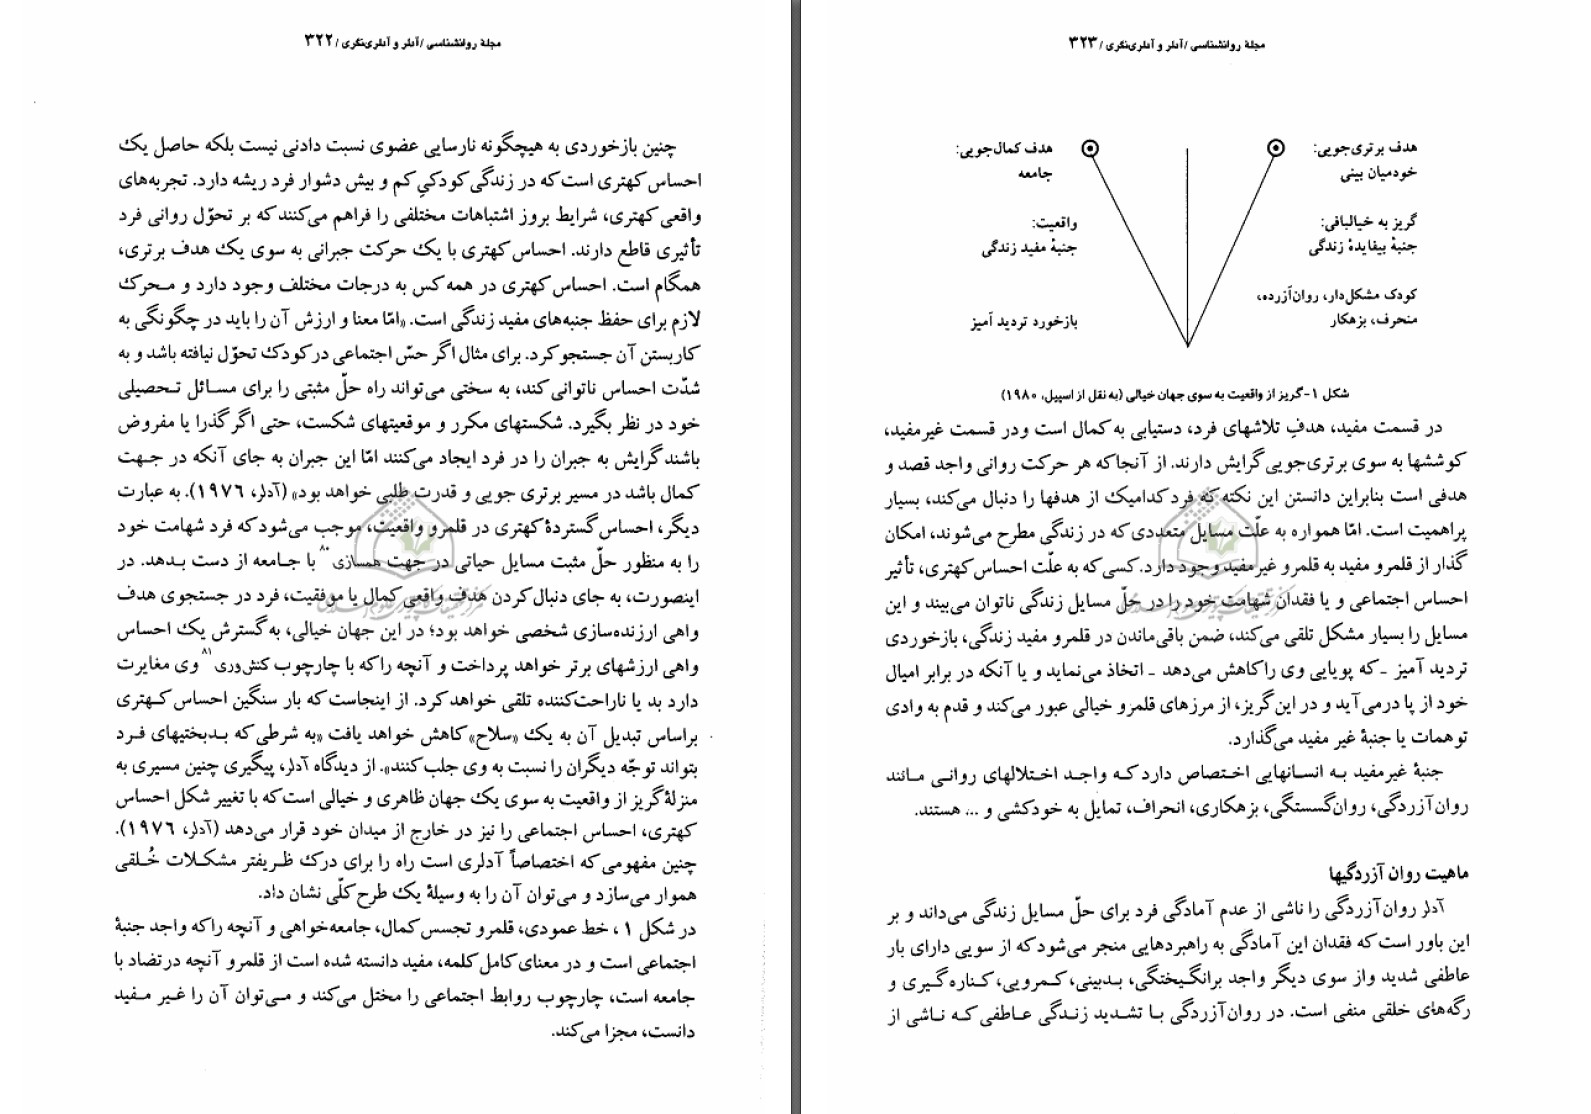 مجلهٔ روانشناسی /آدلر و آدلری‌نگری /۳۲۲
چنین بازخوردی به هیچگونه نارسایی عضوی نسبت دادنی نیست بلکه حاصل یک
احساس کهتری است که در زندگی کودکیِ کم و بیش دشوار فرد ریشه دارد. تجربه‌های
واقعی کهتری، شرایط بروز اشتباهات مختلفی را فراهم می‌کنند که بر تحوّل روانی فرد
تأثیری قاطع دارند. احساس کهتری با یک حرکت جبرانی به سوی یک هدف برتری،
همگام است. احساس کهتری در همه کس به درجات مختلف وجود دارد و محرک
لازم برای حفظ جنبه‌های مفید زندگی است. «امّا معنا و ارزش آن را باید در چگونگی به
کاربستن آن جستجو کرد. برای مثال اگر حسّ اجتماعی در کودک تحوّل نیافته باشد و به
شدّت احساس ناتوانی کند، به سختی می‌تواند راه حلّ مثبتی را برای مسائل تحصیلی
خود در نظر بگیرد. شکستهای مکرر و موقعیتهای شکست، حتی اگر گذرا یا مفروض
باشند گرایش به جبران را در فرد ایجاد می‌کنند امّا این جبران به جای آنکه در جهت
کمال باشد در مسیر برتری جویی و قدرت طلبی خواهد بود» (آدلر، ۱۹۷۶). به عبارت
دیگر، احساس گستردهٔ کهتری در قلمرو واقعیت، موجب می‌شود که فرد شهامت خود
را به منظور حلّ مثبت مسایل حیاتی در جهت همسازی۸۰ با جامعه از دست بدهد. در
اینصورت، به جای دنبال کردن هدف واقعی کمال یا موفقیت، فرد در جستجوی هدف
واهی ارزنده‌سازی شخصی خواهد بود؛ در این جهان خیالی، به گسترش یک احساس
واهی ارزشهای برتر خواهد پرداخت و آنچه را که با چارچوب کنش‌وری۸۱ وی مغایرت
دارد بد یا ناراحت‌کننده تلقی خواهد کرد. از اینجاست که بار سنگین احساس کهتری
براساس تبدیل آن به یک «سلاح» کاهش خواهد یافت «به شرطی که بدبختیهای فرد
بتواند توجّه دیگران را نسبت به وی جلب کنند». از دیدگاه آدلر، پیگیری چنین مسیری به
منزلهٔ گریز از واقعیت به سوی یک جهان ظاهری و خیالی است که با تغییر شکل احساس
کهتری، احساس اجتماعی را نیز در خارج از میدان خود قرار می‌دهد (آدلر، ۱۹۷۶).
چنین مفهومی که اختصاصاً آدلری است راه را برای درک ظریفتر مشکلات خُلقی
هموار می‌سازد و می‌توان آن را به وسیلهٔ یک طرح کلّی نشان داد.
در شکل ۱ ، خط عمودی، قلمرو تجسس کمال، جامعه‌خواهی و آنچه را که واجد جنبهٔ
اجتماعی است و در معنای کامل کلمه، مفید دانسته شده است از قلمرو آنچه در تضاد با
جامعه است، چارچوب روابط اجتماعی را مختل می‌کند و می‌توان آن را غیر مفید
دانست، مجزا می‌کند.
مجلهٔ روانشناسی /آدلر و آدلری‌نگری /۳۲۳
هدف برتری‌جویی:
خودمیان بینی
هدف کمال‌جویی:
جامعه
گریز به خیالبافی:
جنبهٔ بیفایدهٔ زندگی
واقعیت:
جنبهٔ مفید زندگی
کودک مشکل‌دار، روان‌آزرده،
منحرف، بزهکار
بازخورد تردید آمیز
شکل ۱-گریز از واقعیت به سوی جهان خیالی (به نقل از اسپیل، ۱۹۸۰)
در قسمت مفید، هدفِ تلاشهای فرد، دستیابی به کمال است ودر قسمت غیرمفید،
کوششها به سوی برتری‌جویی گرایش دارند. از آنجا که هر حرکت روانی واجد قصد و
هدفی است بنابراین دانستن این نکته که فرد کدامیک از هدفها را دنبال می‌کند، بسیار
پراهمیت است. امّا همواره به علّت مسایل متعددی که در زندگی مطرح می‌شوند، امکان
گذار از قلمرو مفید به قلمرو غیرمفید وجود دارد. کسی که به علّت احساس کهتری، تأثیر
احساس اجتماعی و یا فقدان شهامت خود را در حلّ مسایل زندگی ناتوان می‌بیند و این
مسایل را بسیار مشکل تلقی می‌کند، ضمن باقی‌ماندن در قلمرو مفید زندگی، بازخوردی
تردید آمیز ـ که پویایی وی را کاهش می‌دهد ـ اتخاذ می‌نماید و یا آنکه در برابر امیال
خود از پا درمی‌آید و در این گریز، از مرزهای قلمرو خیالی عبور می‌کند و قدم به وادی
توهمات یا جنبهٔ غیر مفید می‌گذارد.
جنبهٔ غیرمفید به انسانهایی اختصاص دارد که واجد اختلالهای روانی مانند
روان‌آزردگی، روان‌گسستگی، بزهکاری، انحراف، تمایل به خودکشی و ... هستند.
ماهیت روان آزردگیها
آدلر روان‌آزردگی را ناشی از عدم آمادگی فرد برای حلّ مسایل زندگی می‌داند و بر
این باور است که فقدان این آمادگی به راهبردهایی منجر می‌شود که از سویی دارای بار
عاطفی شدید واز سوی دیگر واجد برانگیختگی، بدبینی، کمرویی، کناره‌گیری و
رگه‌های خلقی منفی است. در روان‌آزردگی با تشدید زندگی عاطفی که ناشی از